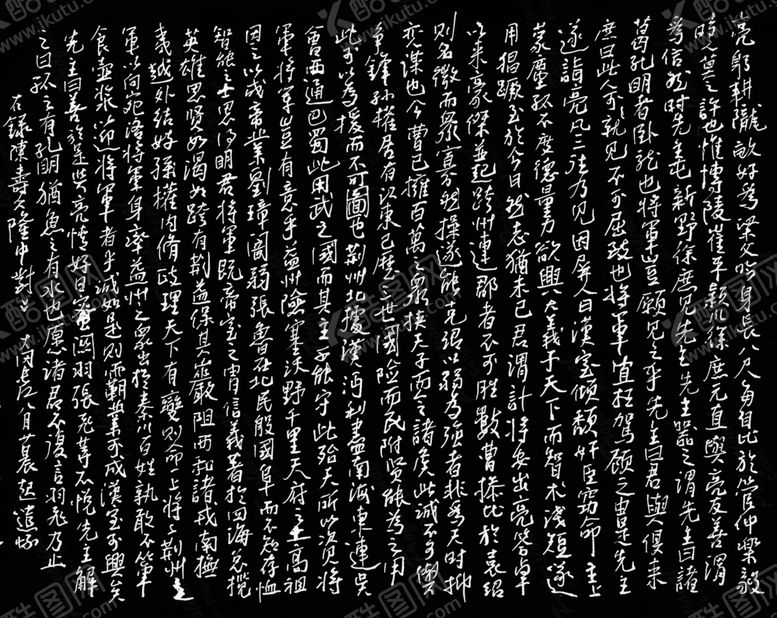 亮躬耕隴畝好為梁父吟身長八尺每自比於管仲樂毅
時人莫之許也惟博陵崔州平潁川徐庶元直與亮友善謂
為信然時先主屯新野徐庶見先主先主器之謂先主曰諸
葛孔明者臥龍也將軍豈願見之乎先主曰君與俱來
庶曰此人可就見不可屈致也將軍宜枉駕顧之由是先主
遂詣亮凡三往乃見因屏人曰漢室傾頹奸臣竊命主上
蒙塵孤不度德量力欲興大義于天下而智术淺短遂
用猖蹶至於今日然志猶未已君謂計將安出亮答卓
以來豪傑並起跨州連郡者不可勝數曹操比於袁紹
則名微而衆寡然操遂能克紹以弱為強者非為天時抑
亦謀也今曹已擁百萬之衆挾天子而令諸侯此誠不可與
爭鋒孫權居有江東已歷三世國險而民附賢能為之用
此可以為援而不可圖也荊州北據漢沔利盡南海東連吳
會西通巴蜀此用武之國而其主不能守此殆天所以資將
軍將軍豈有意乎益州險塞沃野千里天府之土高祖
因之以成帝業劉璋闇弱張魯在北民殷國阜而不知存恤
智能之士思得明君將軍既帝室之胄信義著於四海總攬
英雄思賢如渴如跨有荊益保其巖阻西和諸戎南撫
夷越外結好孫權內脩政理天下有變則命一上將將荊州之
軍以向宛洛將軍身率益州之衆出於秦川百姓孰敢不簞
食壺漿以迎將軍者乎誠如是則霸業可成漢室可興矣
先主曰善於是與亮情好日密關羽張飛等不悅先主解
之曰孤之有孔明猶魚之有水也愿諸君勿復言羽飛乃止
右錄陳壽隆中對